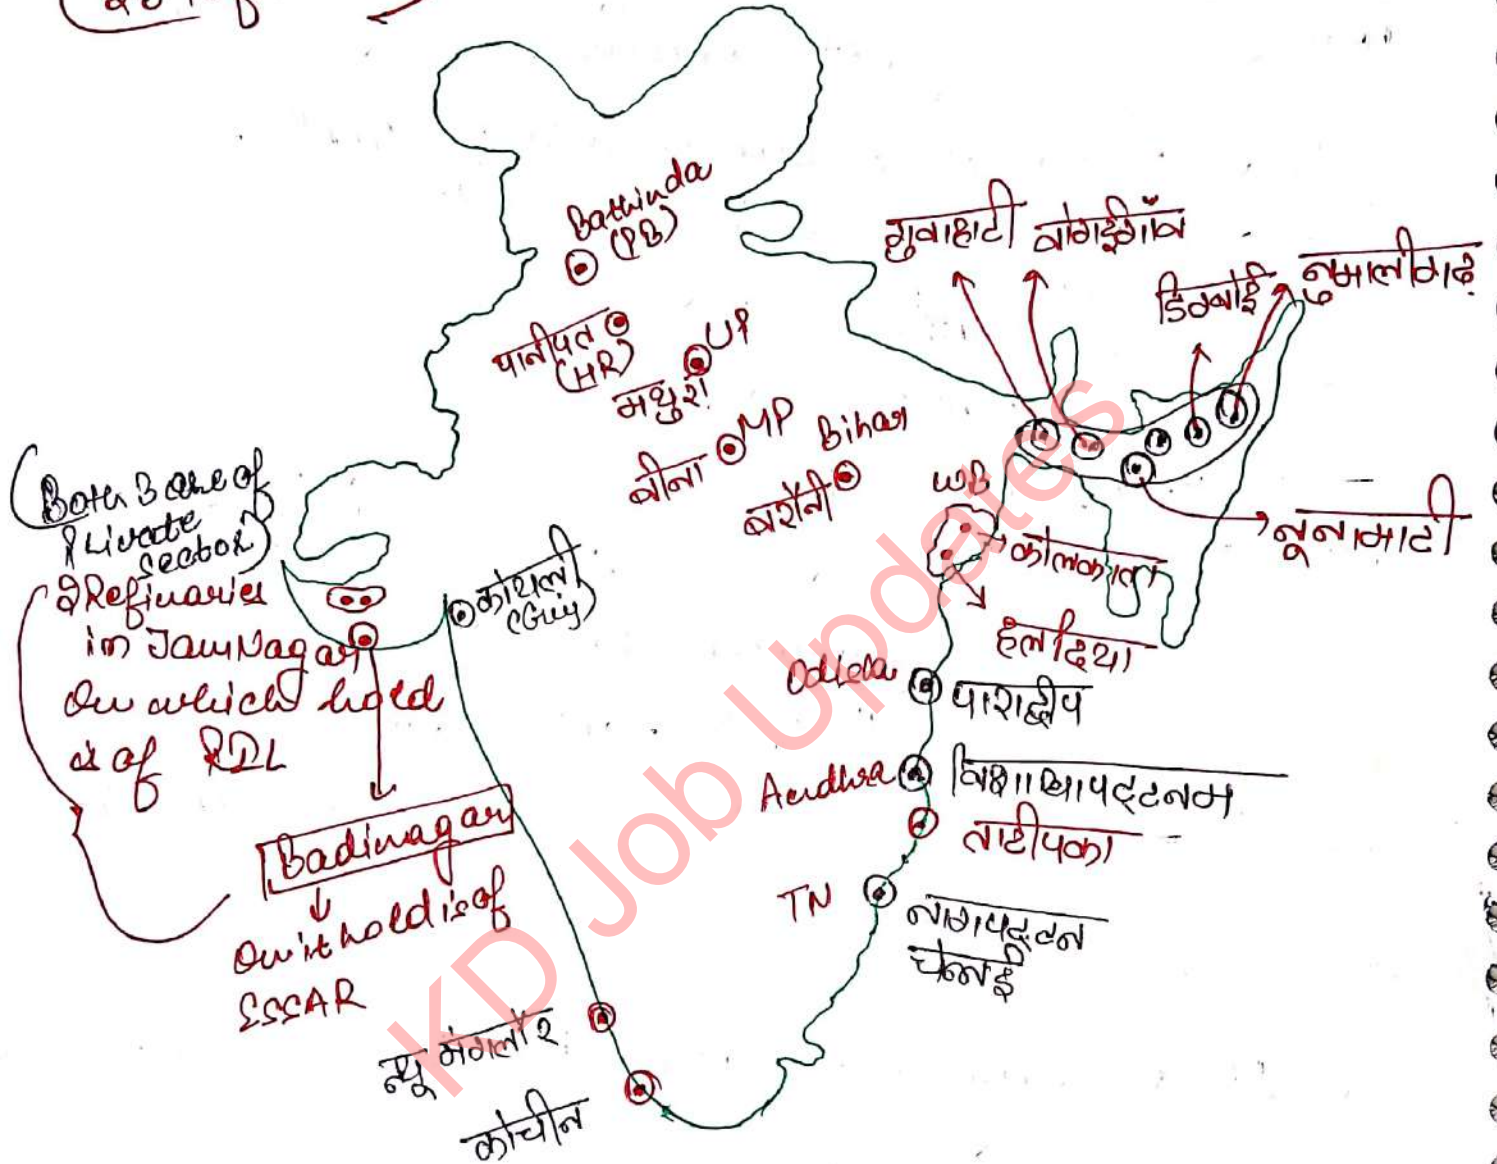 Bathinda
(PB)
पानीपत
(HR)
मथुरा
UP
बीना
MP
Bihar
बरौनी
गुवाहाटी
बोंगईगाँव
डिग्बोई
नुमालीगढ़
नूनामाटी
WB
कोलकाता
हल्दिया
Odisha
पाराद्वीप
Andhra
विशाखापट्टनम
ताटीपका
TN
नागपट्टन
चेन्नई
(Both 3 are of
Private
sector)
2 Refinaries
in JamNagar
On which hold
is of RIL
कोयली
(Guj)
Badinagar
On it hold is of
ESSAR
न्यू मंगलौर
कोचीन
KD Job Updates